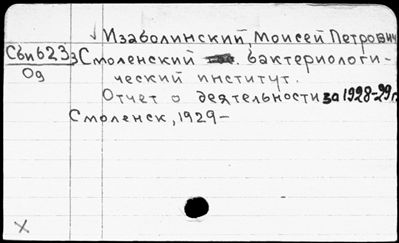 Изаболинский, Моисей Петрович
Сби623з Смоленский бактериологи-
Од
ческий институт.
Отчет о деятельности за 1928-29 г.
Смоленск, 1929-
X